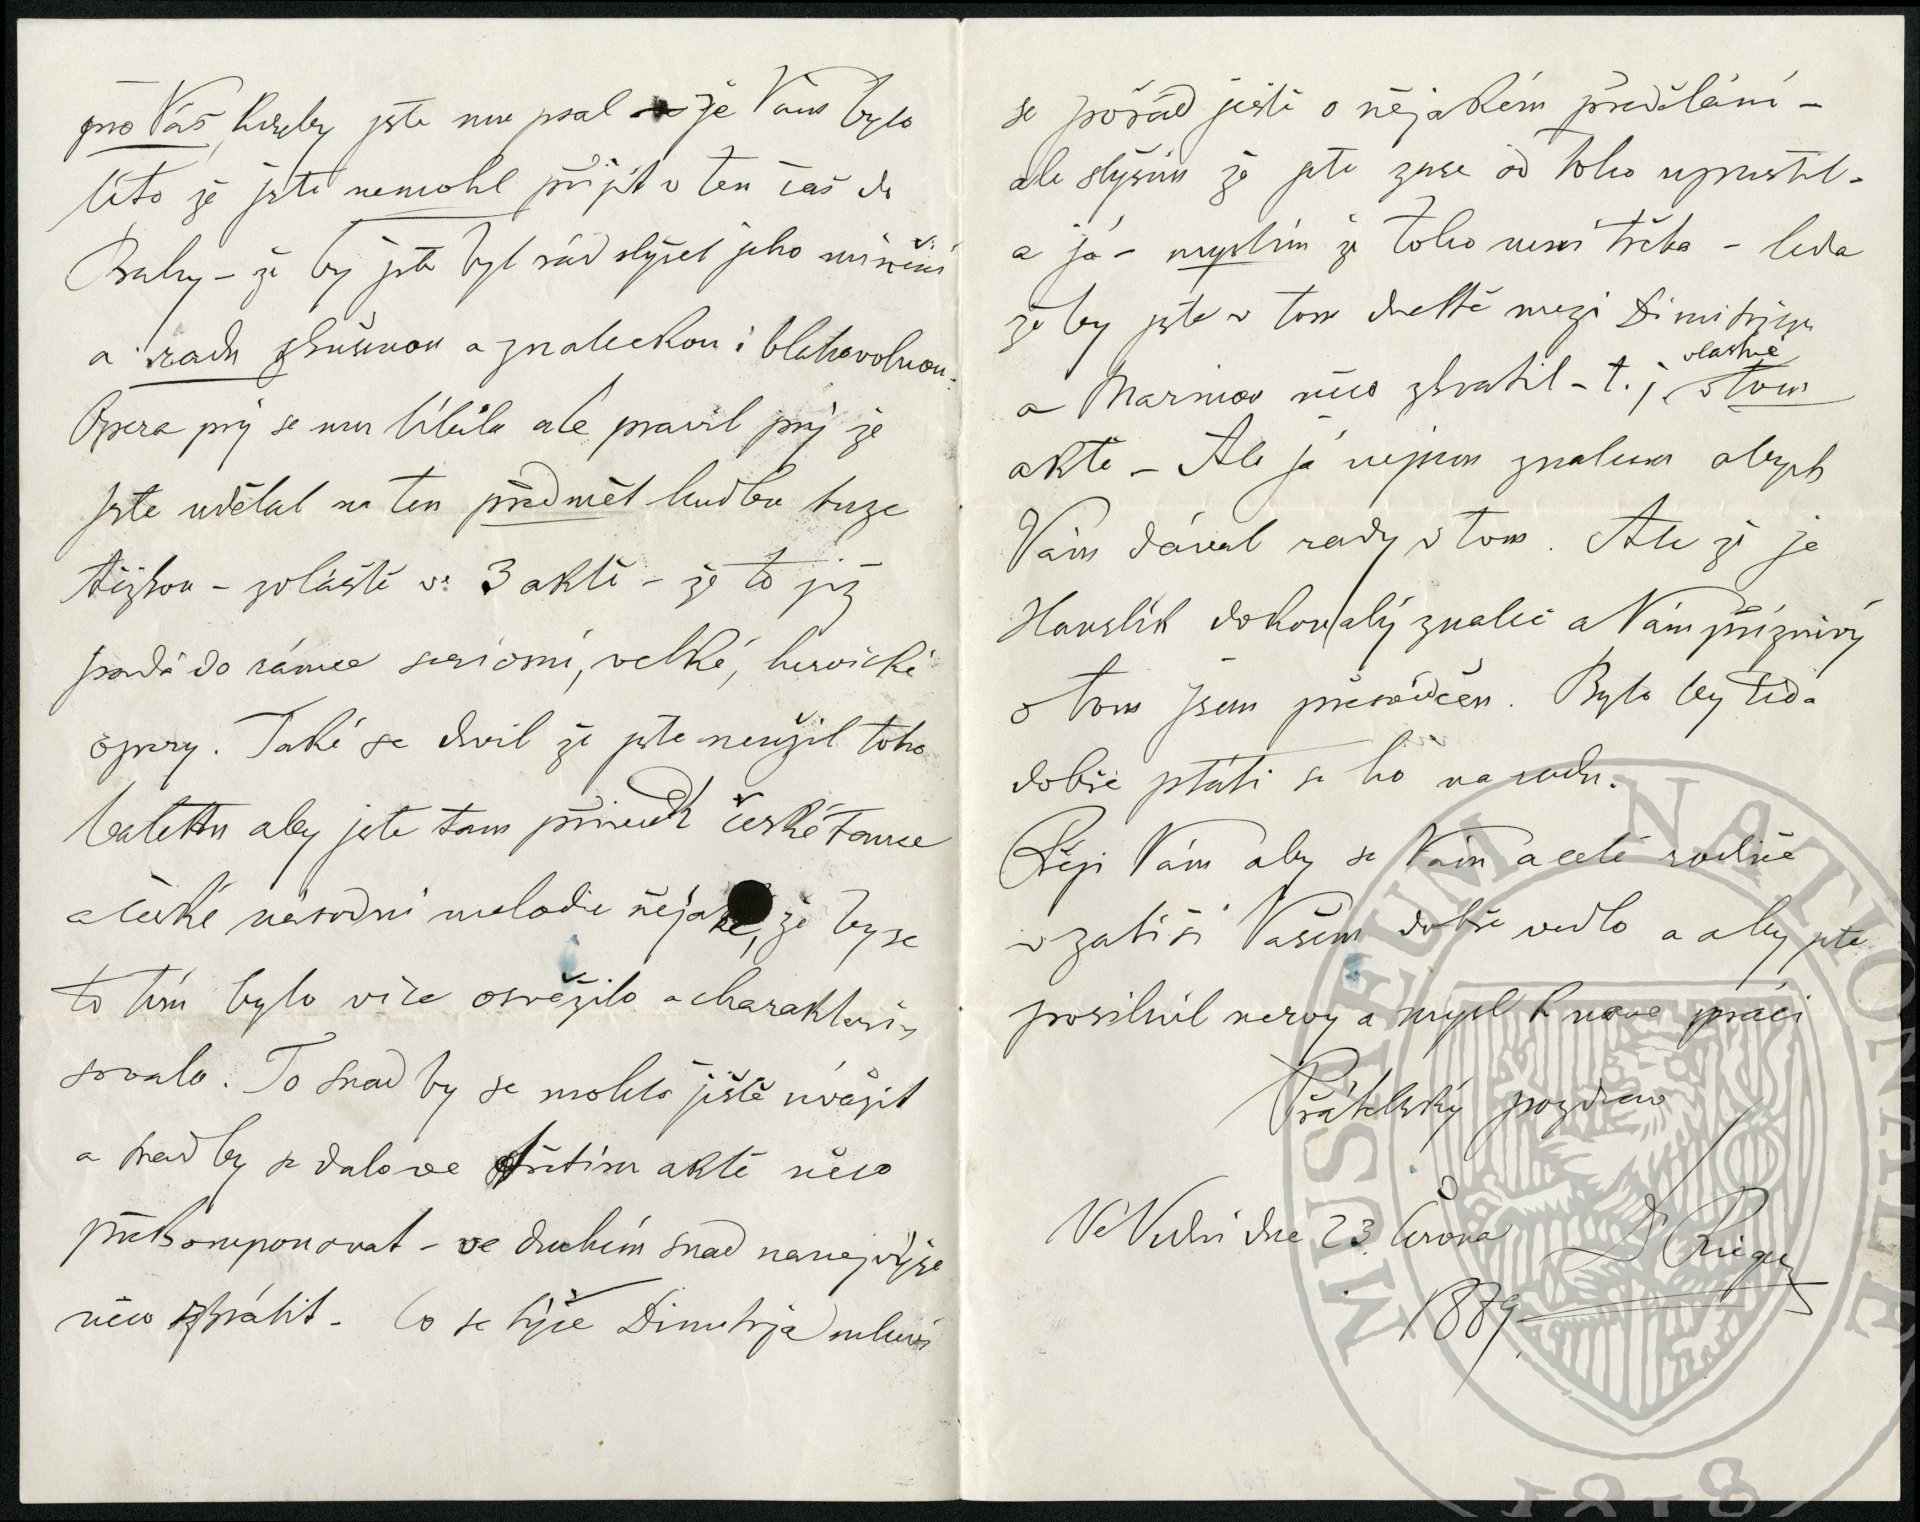 pro Vás, kdyby jste mu psal že Vám bylo
líto že jste nemohl přijít v ten čas do
Prahy – že by jste byl rád slyšel jeho mínění
a radu zkušenou a znaleckou i blahovolnou.
Opera prý se mu líbila ale pravil prý že
jste udělal na ten předmět hudbu tuze
těžkou – zvláště v 3 aktě – že to již
padá do rámce seriosní, velké, heroické
opery. Také se divil že jste neužil toho
balettu aby jste tam přivedl české tance
a české národní melodie nějaké, že by se
to tím bylo více osvěžilo a charakteri-
sovalo. To snad by se mohlo ještě uvážit
a snad by se dalo ve třetím aktě něco
překomponovat – ve druhém snad nanejvýše
něco zkrátit – Co se týče Dimitrije mluví
se pořád ještě o nějakém předělání –
ale slyším že jste zase od toho upustil –
a já – myslím že toho není třeba – leda
že by jste v tom duettě mezi Dimitrijem
a Marinou něco zkrátil – t. j. vlastně v tom
aktě – Ale já nejsem znalcem abych
Vám dával rady v tom. Ale že je
Hanslik dokonalý znalec a Vám příznivý
o tom jsem přesvědčen. Bylo by teda
dobře ptáti se ho na radu.
Přeji Vám aby se Vám a celé rodině
v zátiší Vašem dobře vedlo a aby jste
posilnil nervy a mysl k nové práci
Přátelský pozdrav
Ve Vídni dne 23. února Dr Rieger
1889.
MUSEUM NATIONALE
1818